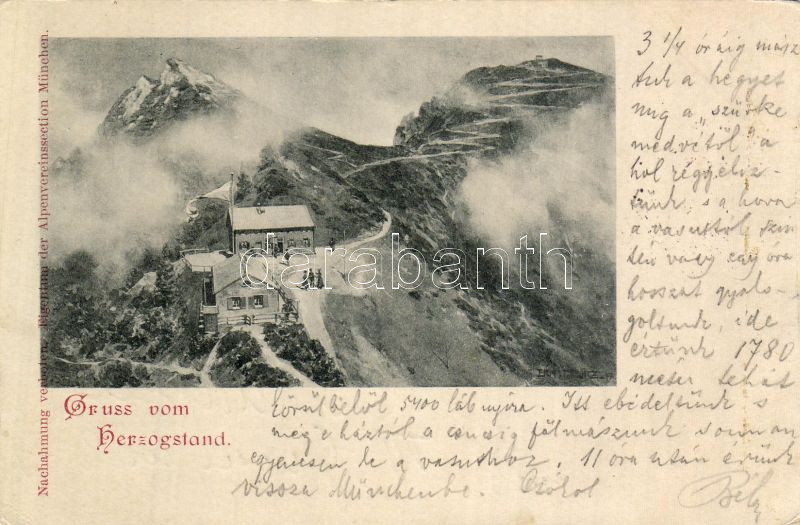 Nachahmung verboten. Eigentum der Alpenvereinssection München.
Gruss vom
Herzogstand.
darabanth
3 1/4 óráig mász
tuk a hegyet
míg a „szürke
medvétől" a
hol réggeliz-
tünk s a hova
a vasúttól szin
tén vagy egy óra
hosszat gyalo-
goltunk, ide
értünk 1780
meter tehát
körülbelől 5400 láb nyira. Itt ebédeltünk s
még e háztól a csúcsig fölmászunk s onnan
egyenesen le a vasúthoz. 11 óra után érünk
vissza Münchenbe. Csókol
Béla